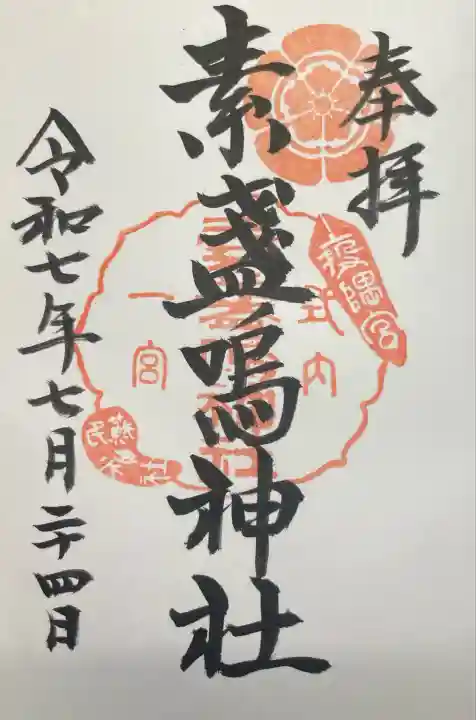 奉拝
素盞嗚神社
式内
一宮
令和七年七月二十四日